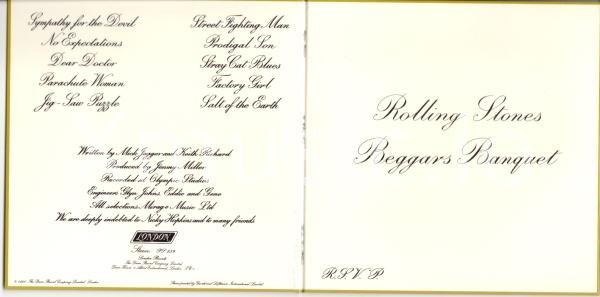 Sympathy for the Devil
No Expectations
Dear Doctor
Parachute Woman
Jig-Saw Puzzle
Street Fighting Man
Prodigal Son
Stray Cat Blues
Factory Girl
Salt of the Earth
Written by Mick Jagger and Keith Richard
Produced by Jimmy Miller
Recorded at Olympic Studios
Engineers Glyn Johns, Eddie and Gene
All selections Mirage Music Ltd
We are deeply indebted to Nicky Hopkins and to many friends
LONDON
Stereo PS 539
London Records
The Decca Record Company Limited
Rolling Stones
Beggars Banquet
R.S.V.P.